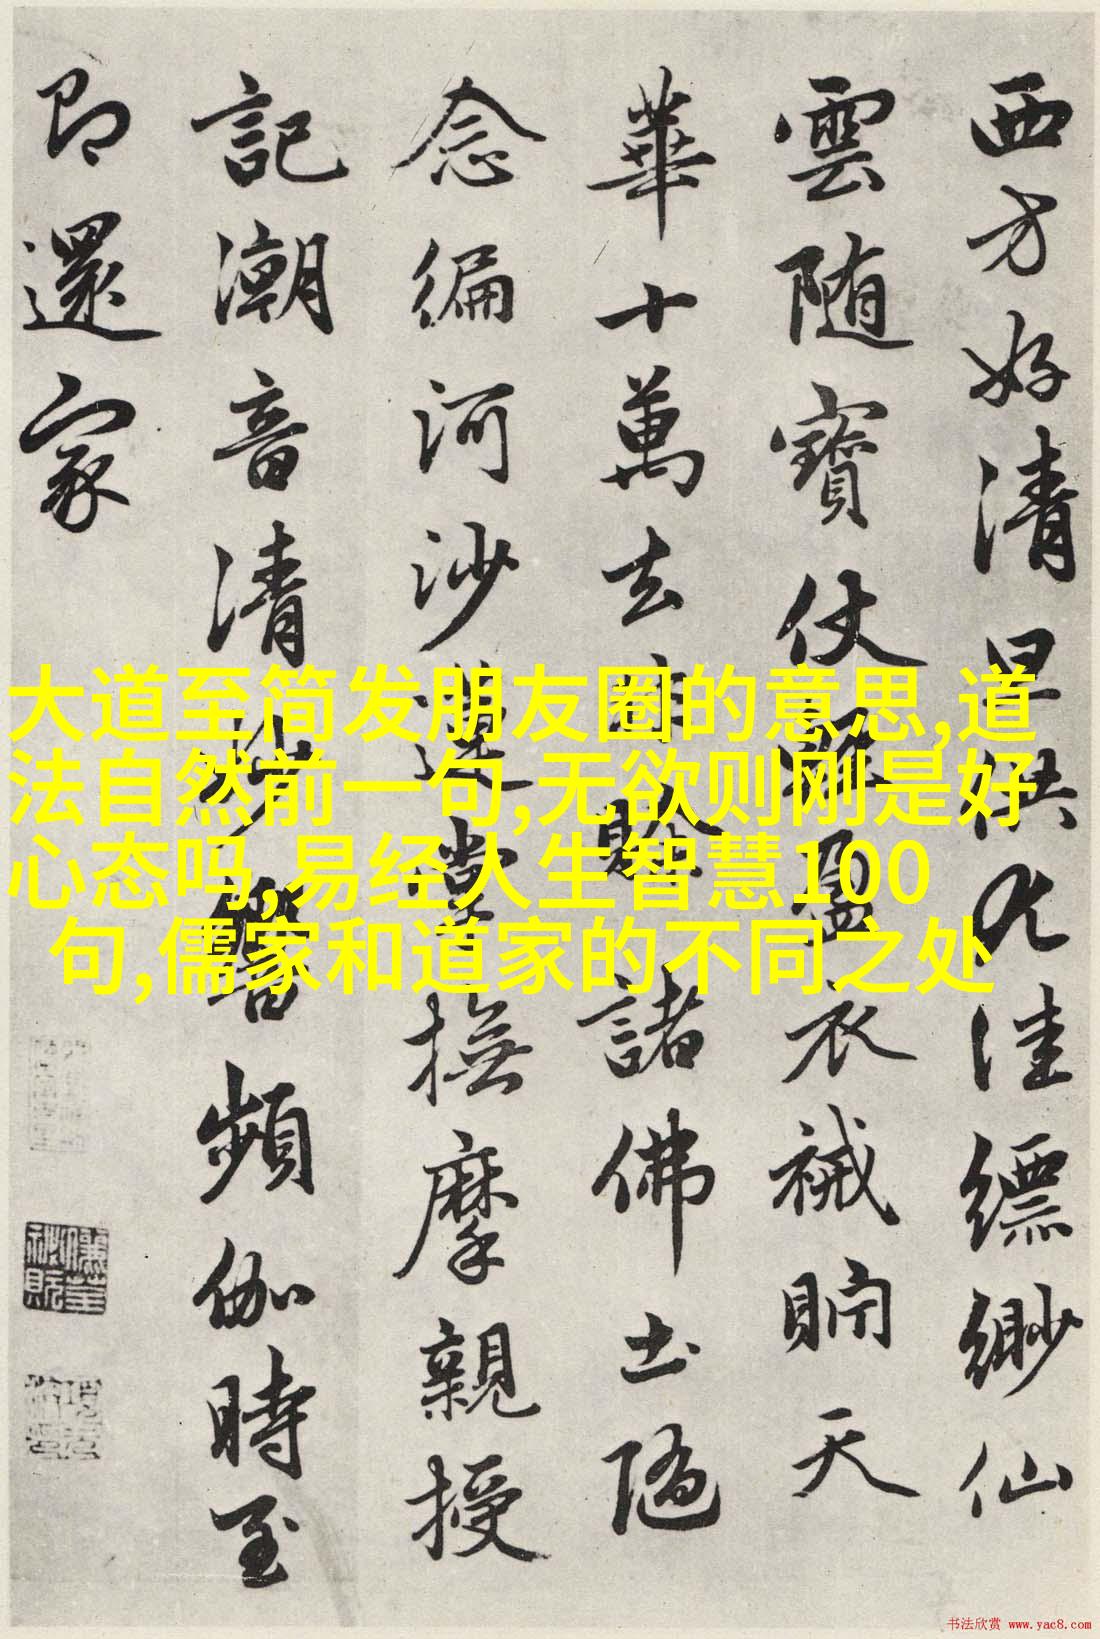 西方好清旦供尤佳縹緲仙
雲随寶仗輕盈衣裓貯天
華十萬去非賒諸佛土隨
念徧河沙蓮掌撫摩親授
記潮音清妙響頻伽時至
即還家
大道至简发朋友圈的意思,道
法自然前一句,无欲则刚是好
心态吗,易经人生智慧100
句,儒家和道家的不同之处
书法欣赏 www.yac8.com